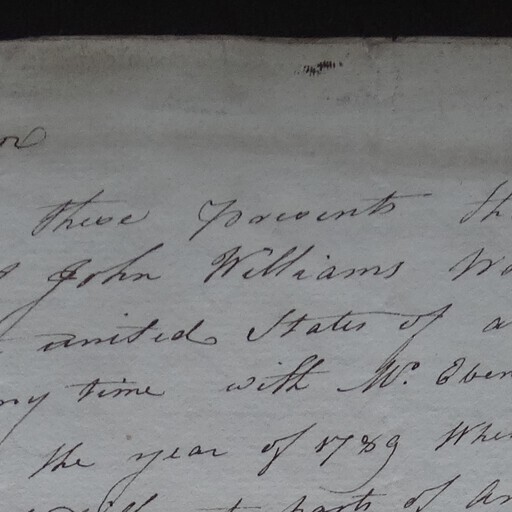 these presents th
John Williams Wa
united States of a
my time with Mr. Eben
the year of 1789 When
parts of an